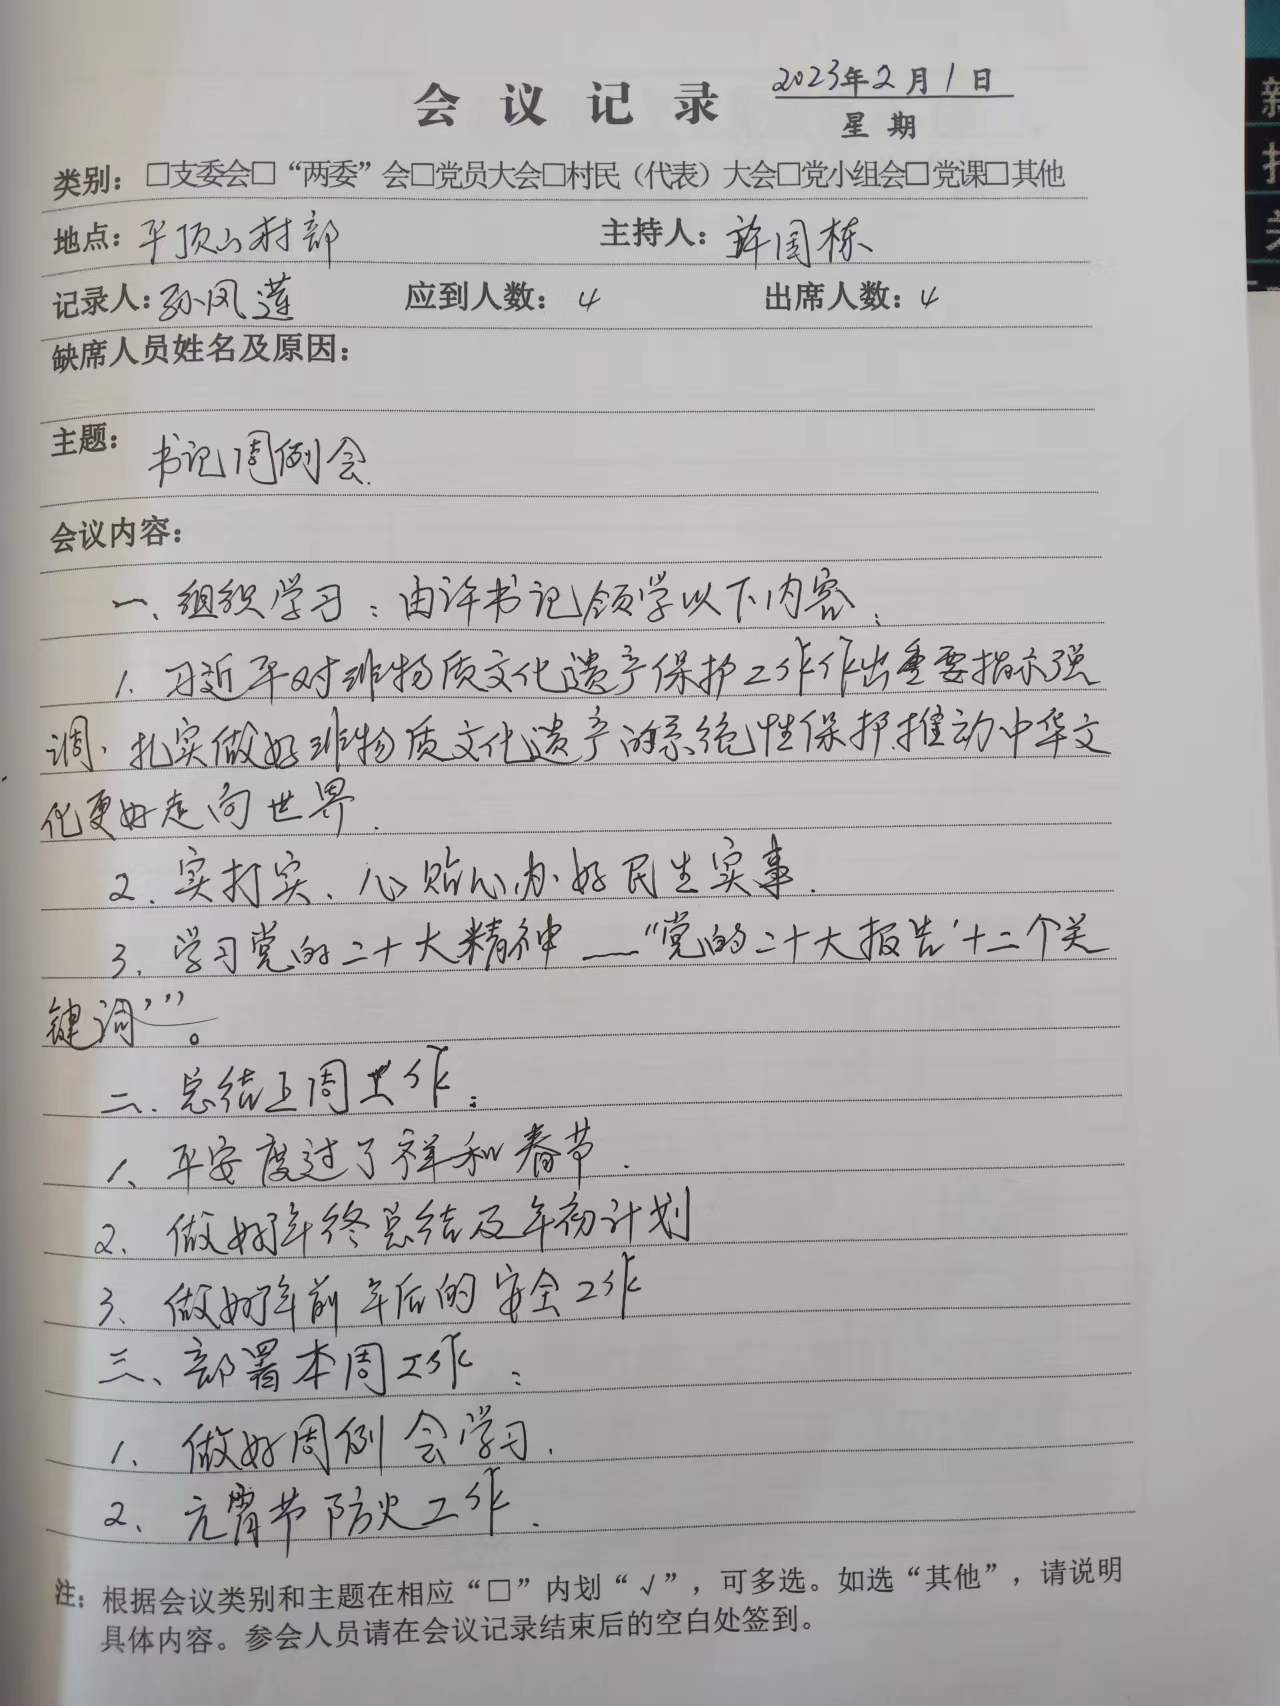 会议记录 2023年2月1日
星期
类别：□支委会□“两委”会□党员大会□村民（代表）大会□党小组会□党课□其他
地点：平顶山村部 主持人：许国栋
记录人：孙凤莲 应到人数：4 出席人数：4
缺席人员姓名及原因：
主题：书记周例会.
会议内容：
一、组织学习：由许书记领学以下内容：
1. 习近平对非物质文化遗产保护工作作出重要指示强
调、扎实做好非物质文化遗产的系统性保护.推动中华文
化更好走向世界.
2. 实打实、心贴心办好民生实事.
3. 学习党的二十大精神——“党的二十大报告‘十二个关
键词’”。
二、总结上周工作：
1、平安度过了祥和春节.
2、做好年终总结及年初计划
3、做好年前年后的安全工作
三、部署本周工作：
1、做好周例会学习.
2、元宵节防火工作.
注：根据会议类别和主题在相应“□”内划“√”，可多选。如选“其他”，请说明
具体内容。参会人员请在会议记录结束后的空白处签到。